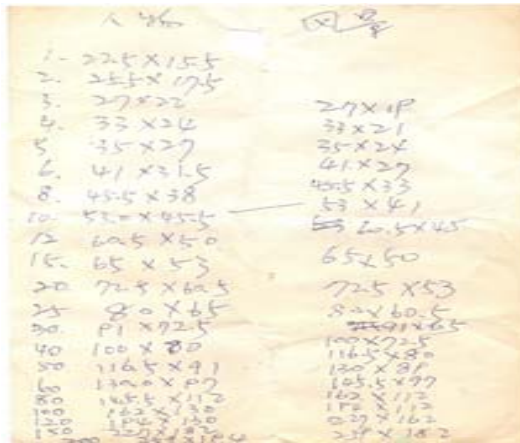 人物 风景
1. 22.5×15.5
2. 25.5×17.5
3. 27×22 27×19
4. 33×24 33×21
5 35×27 35×24
6. 41×31.5 41×27
8. 45.5×38 45.5×33
10. 53.0×45.5 53×41
12 60.5×50 60.5×45
15. 65×53 65×50
20. 72.5×60.5 72.5×53
25 80×65 80×60.5
30. 91×72.5 91×65
40 100×80 100×72.5
50 116.5×91 116.5×80
60 130.0×97 130×89
80 145.5×112 145.5×97
100 162×130 162×112
120 194×130 194×112
227×182 227×162